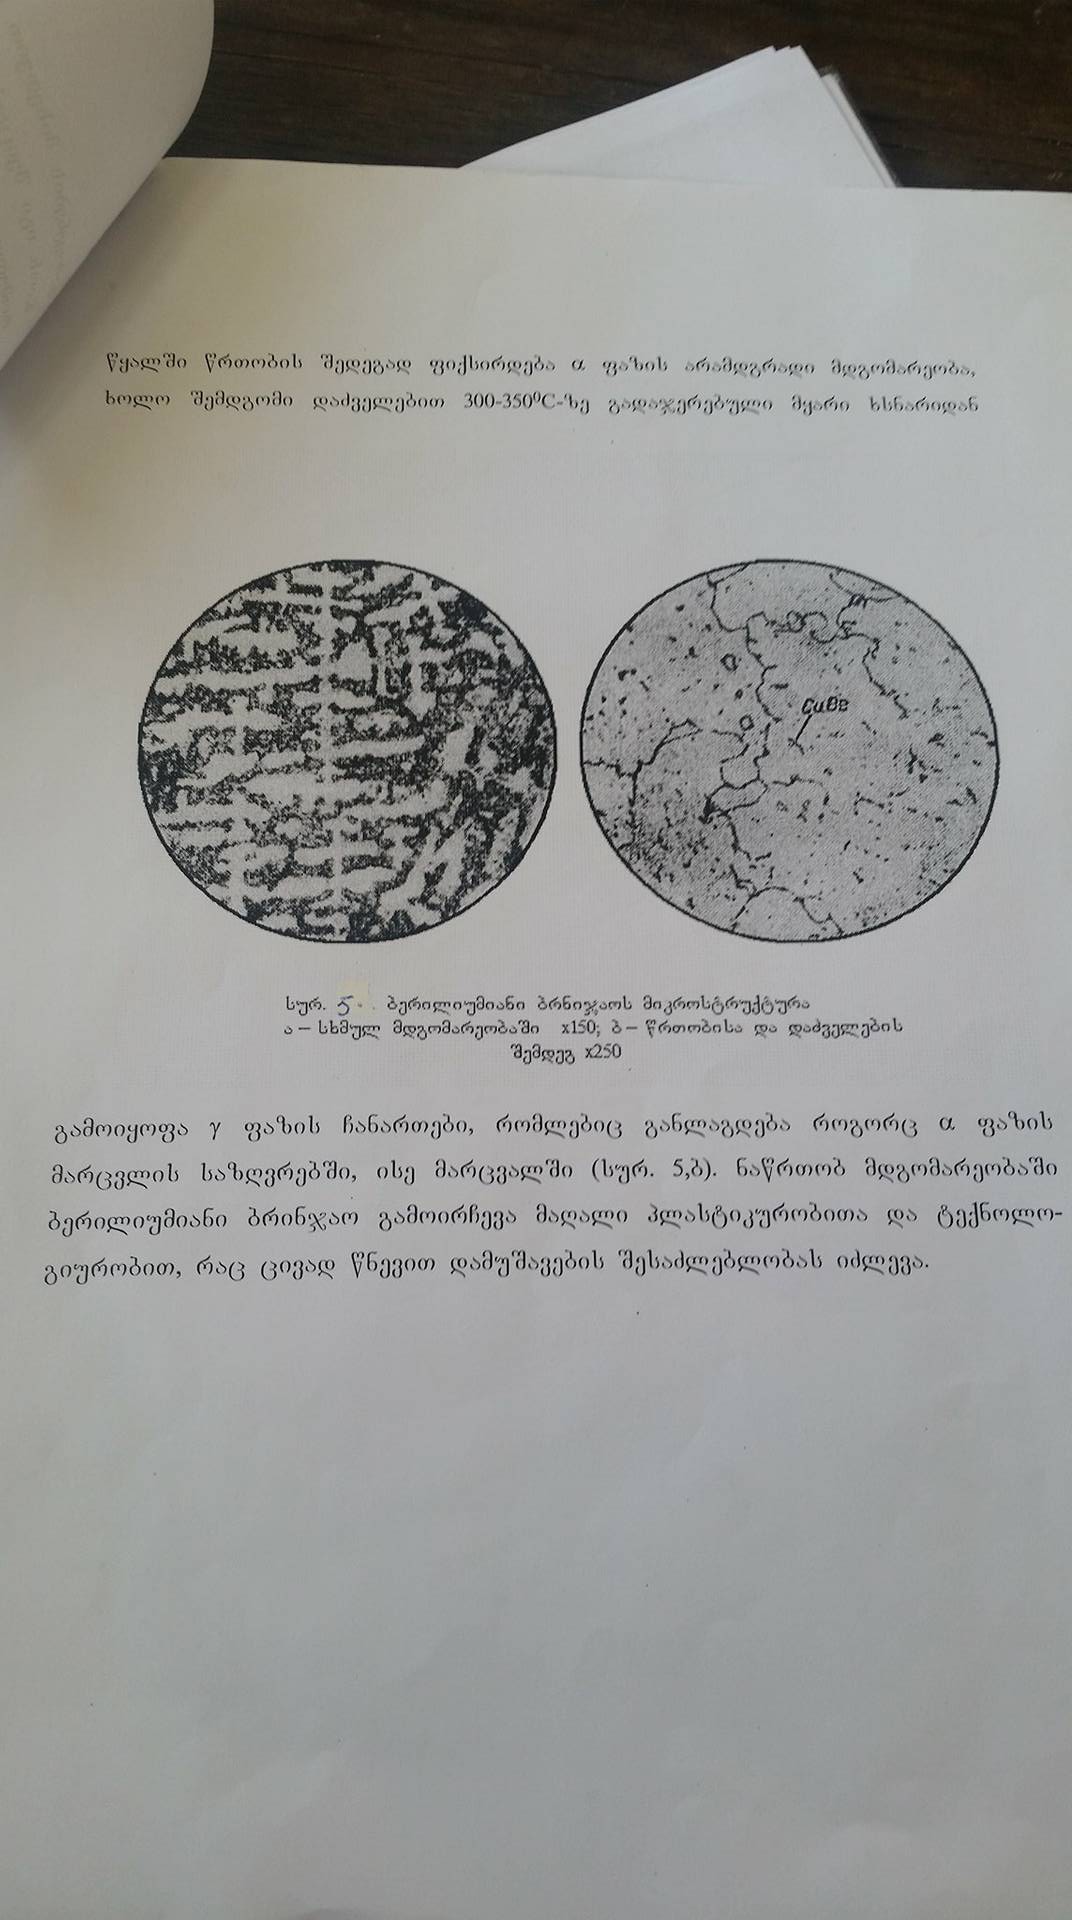 წყალში წრთობის შედეგად ფიქსირდება α ფაზის არამდგრადი მდგომარეობა,
ხოლო შემდგომი დაძველებით 300-350⁰C-ზე გადაჯერებული მყარი ხსნარიდან
CuBe
სურ. 5. ბერილიუმიანი ბრნიჯაოს მიკროსტრუქტურა
ა – სხმულ მდგომარეობაში x150; ბ – წრთობისა და დაძველების
შემდეგ x250
გამოიყოფა γ ფაზის ჩანართები, რომლებიც განლაგდება როგორც α ფაზის
მარცვლის საზღვრებში, ისე მარცვალში (სურ. 5,ბ). ნაწრთობ მდგომარეობაში
ბერილიუმიანი ბრინჯაო გამოირჩევა მაღალი პლასტიკურობითა და ტექნოლო-
გიურობით, რაც ცივად წნევით დამუშავების შესაძლებლობას იძლევა.